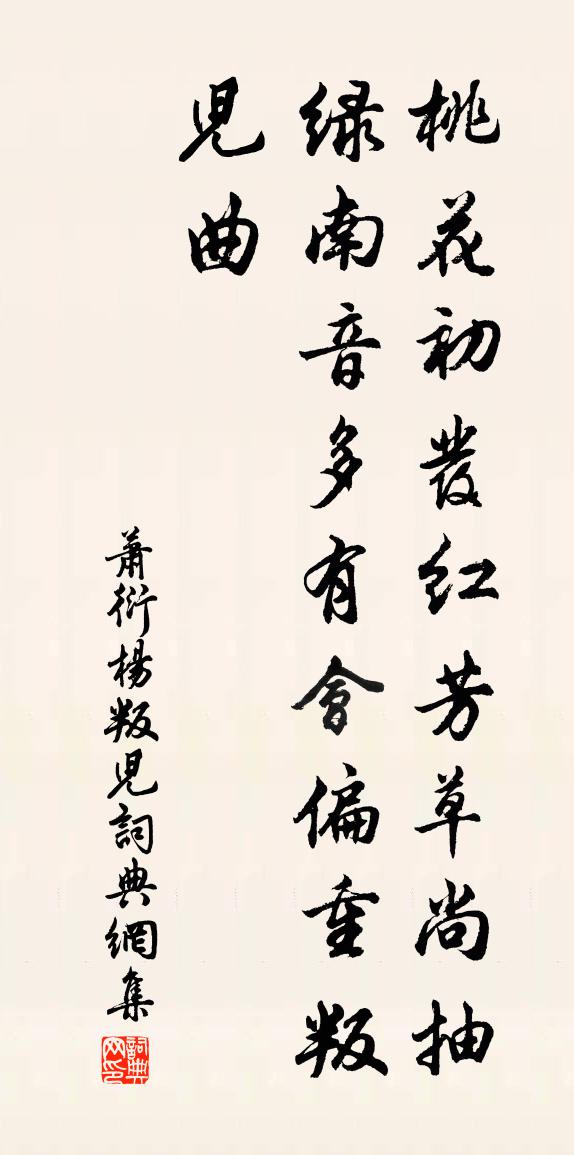 桃花初發紅芳草尚抽
緑南音多有會偏重叛
児曲
蕭衍楊叛児詞典網集
詞典网印